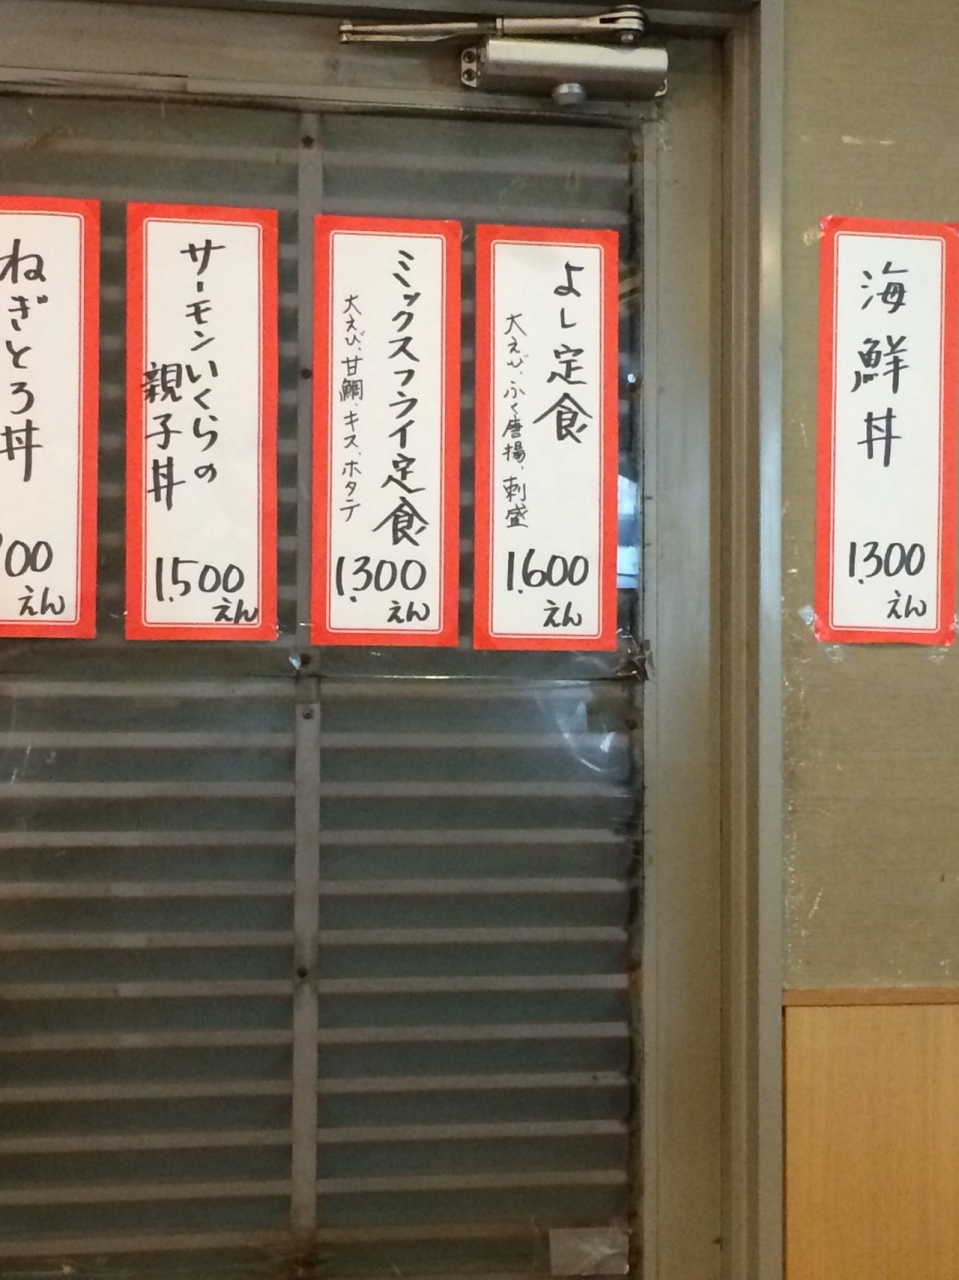 海鮮丼
1.300
えん
よし定食
大えび、ふく唐揚、刺盛
1.600
えん
ミックスフライ定食
大えび、甘鯛、キス、ホタテ
1.300
えん
サーモンいくらの
親子丼
1.500
えん
ねぎとろ丼
00
えん